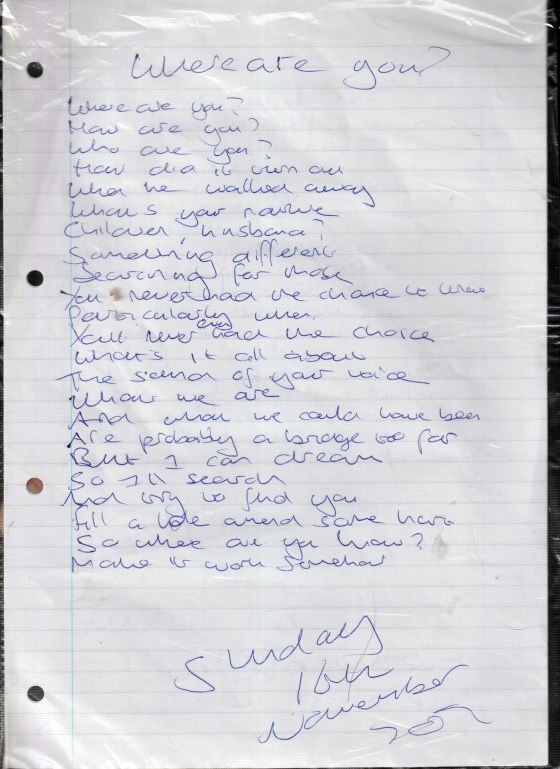 Where are you?
Where are you?
How are you?
Who are you?
How did it turn out
When we walked away
What's your name
Children, husband?
Something different
Searching for more
You never had the chance to know
Particularly when
You never even had the choice
What's it all about
The sound of your voice
What we are
And what we could have been
Are probably a bridge too far
But I can dream
So I'll search
And try to find you
Fill a hole mend some hurt
So where are you now?
Make it work somehow
Sunday
16th
November